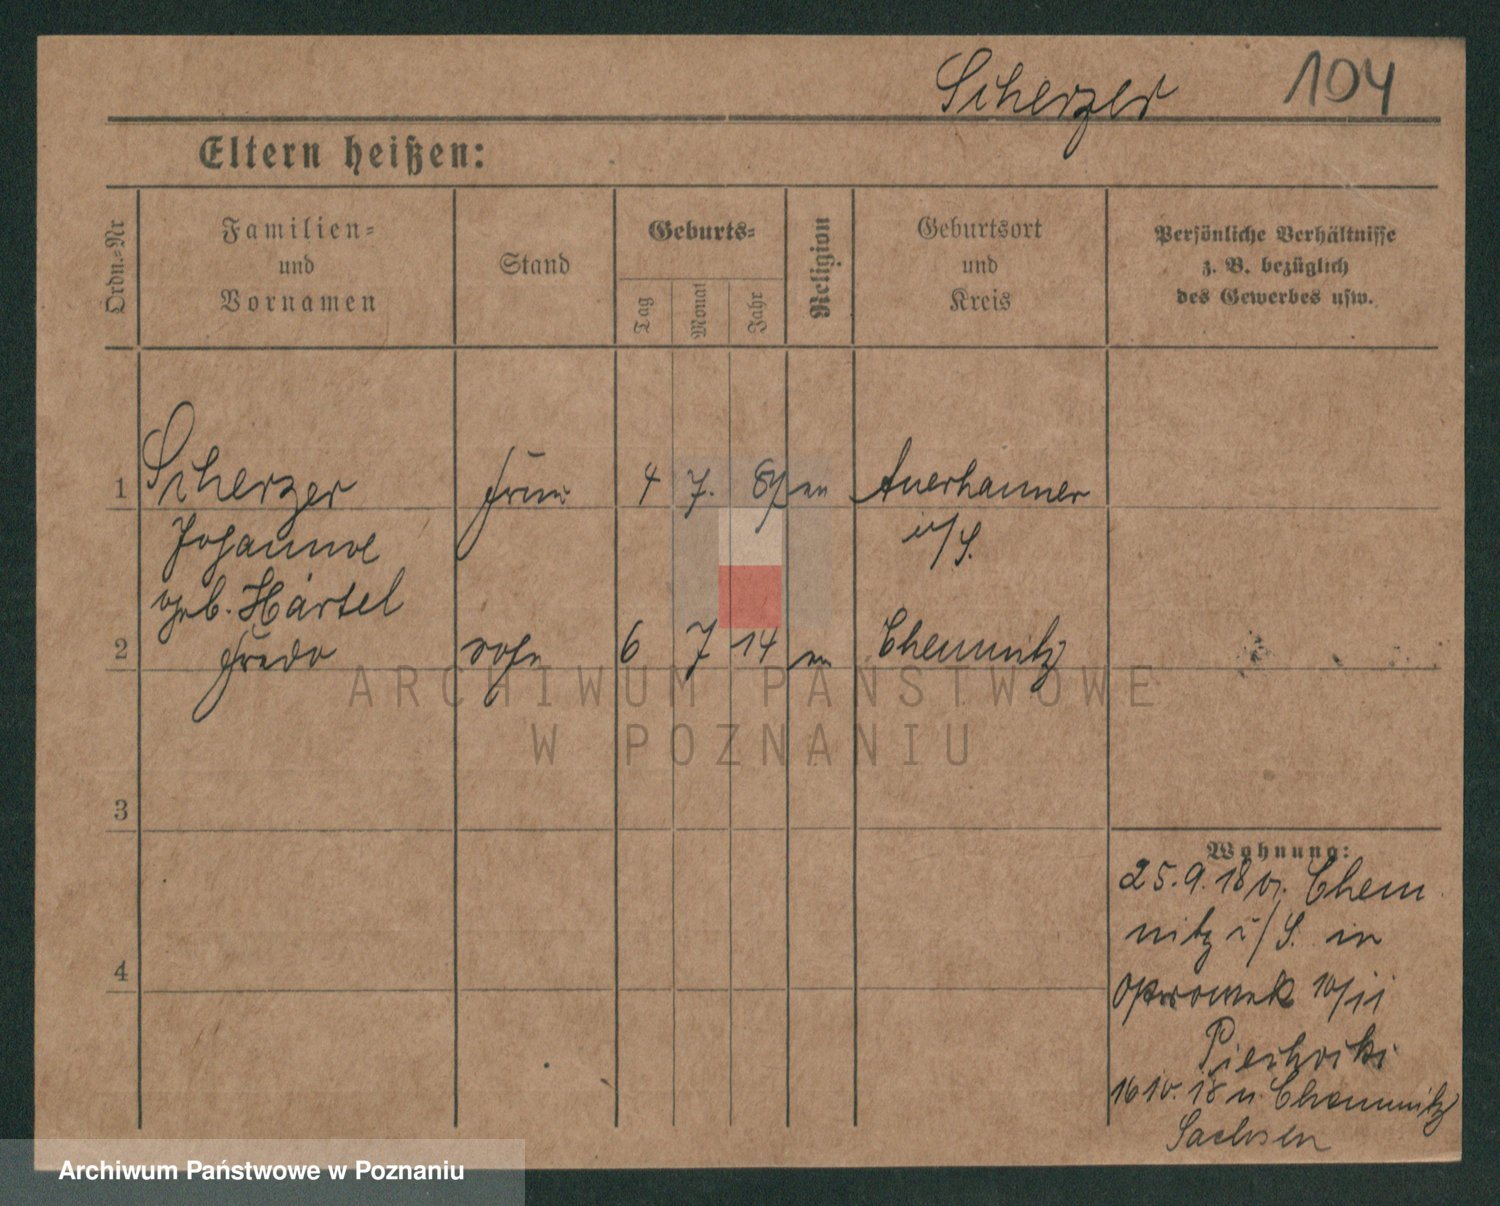 Scherzer 104
Eltern heißen:
Ordn.-Nr
Familien-
und
Vornamen
Stand
Geburts-
Tag
Monat
Jahr
Religion
Geburtsort
und
Kreis
Persönliche Verhältnisse
z. B. bezüglich
des Gewerbes usw.
1 Scherzer Frau 4 7. 87 ev Auerhammer
Johanne i/S.
geb. Härtel
2 Fredo Sohn 6 7 14 ev Chemnitz
3
4
Wohnung:
25.9.18 v. Chem
nitz i/S. in
10/11
16 10. 18 n. Chemnitz
Sachsen
ARCHIWUM PAŃSTWOWE
W POZNANIU
Archiwum Państwowe w Poznaniu